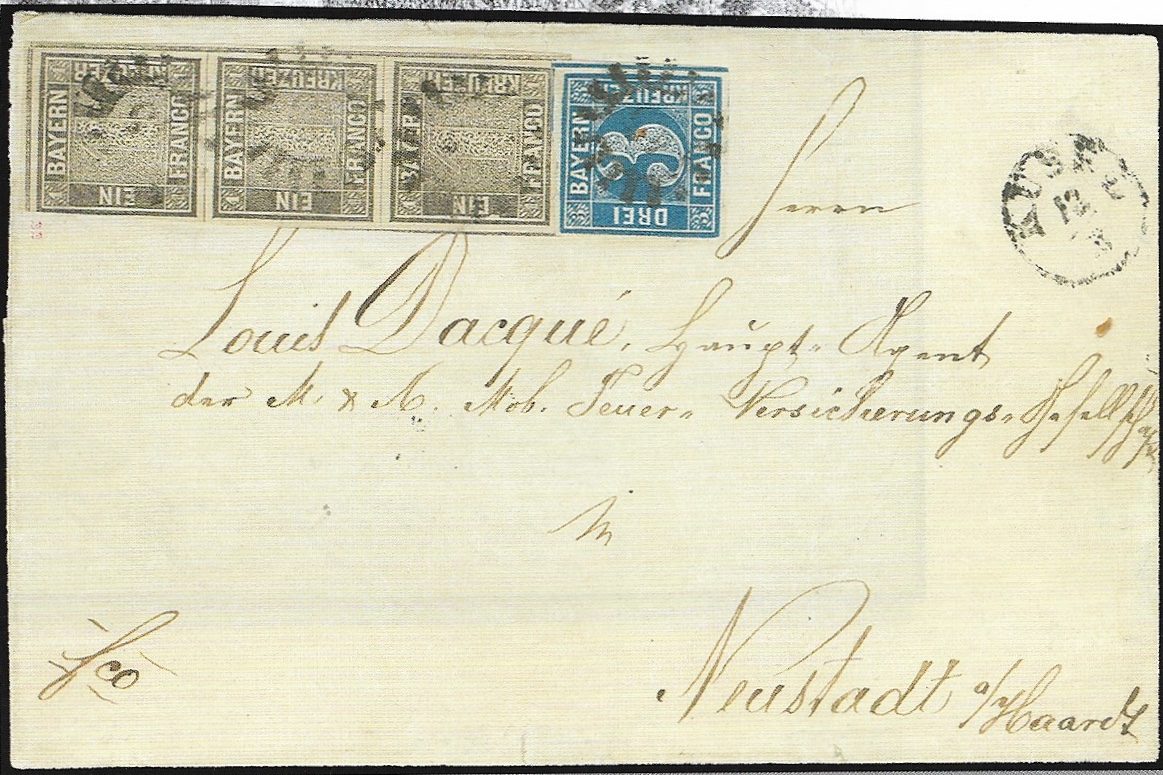 KREUZER KREUZER KREUZER KREUZER
BAYERN FRANCO BAYERN FRANCO BAYERN FRANCO BAYERN 3 FRANCO
EIN EIN EIN DREI
KUSEL
12
3
Herrn
Louis Dacqué, Haupt-Agent
der M. & A. Mob. Feuer-Versicherungs-Gesellschaft
in
Neustadt a/Haardt
fco